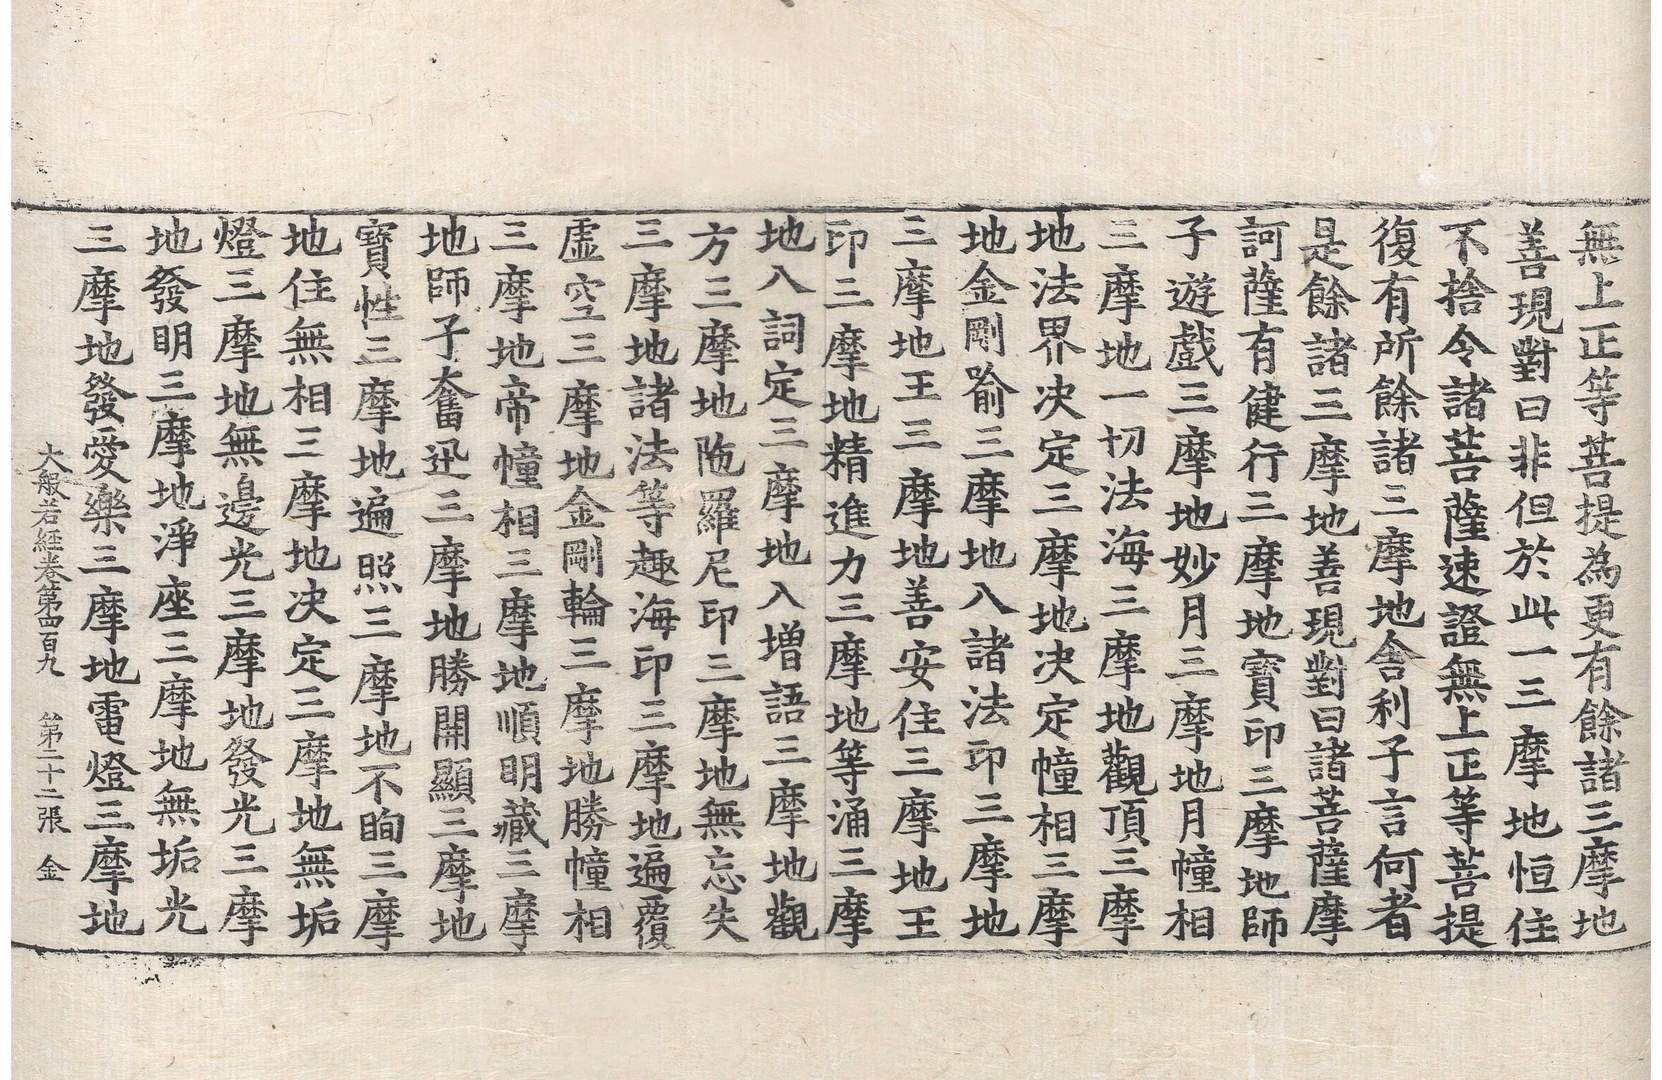 無上正等菩提為更有餘諸三摩地
善現對曰非但於此一三摩地恒住
不捨令諸菩薩速證無上正等菩提
復有所餘諸三摩地舎利子言何者
是餘諸三摩地善現對曰諸菩薩摩
訶薩有健行三摩地寶印三摩地師
子遊戲三摩地妙月三摩地月幢相
三摩地一切法海三摩地觀頂三摩
地法界决定三摩地决定幢相三摩
地金剛喻三摩地入諸法印三摩地
三摩地王三摩地善安住三摩地王
印三摩地精進力三摩地等涌三摩
地入詞定三摩地入增語三摩地觀
方三摩地陁羅尼印三摩地無忘失
三摩地諸法等趣海印三摩地遍覆
虛空三摩地金剛輪三摩地勝幢相
三摩地帝幢相三摩地順明藏三摩
地師子奮迅三摩地勝開顯三摩地
寶性三摩地遍照三摩地不眴三摩
地住無相三摩地决定三摩地無垢
燈三摩地無邊光三摩地發光三摩
地發明三摩地淨座三摩地無垢光
三摩地發愛樂三摩地電燈三摩地
大般若經卷第四百九 第二十二張 金